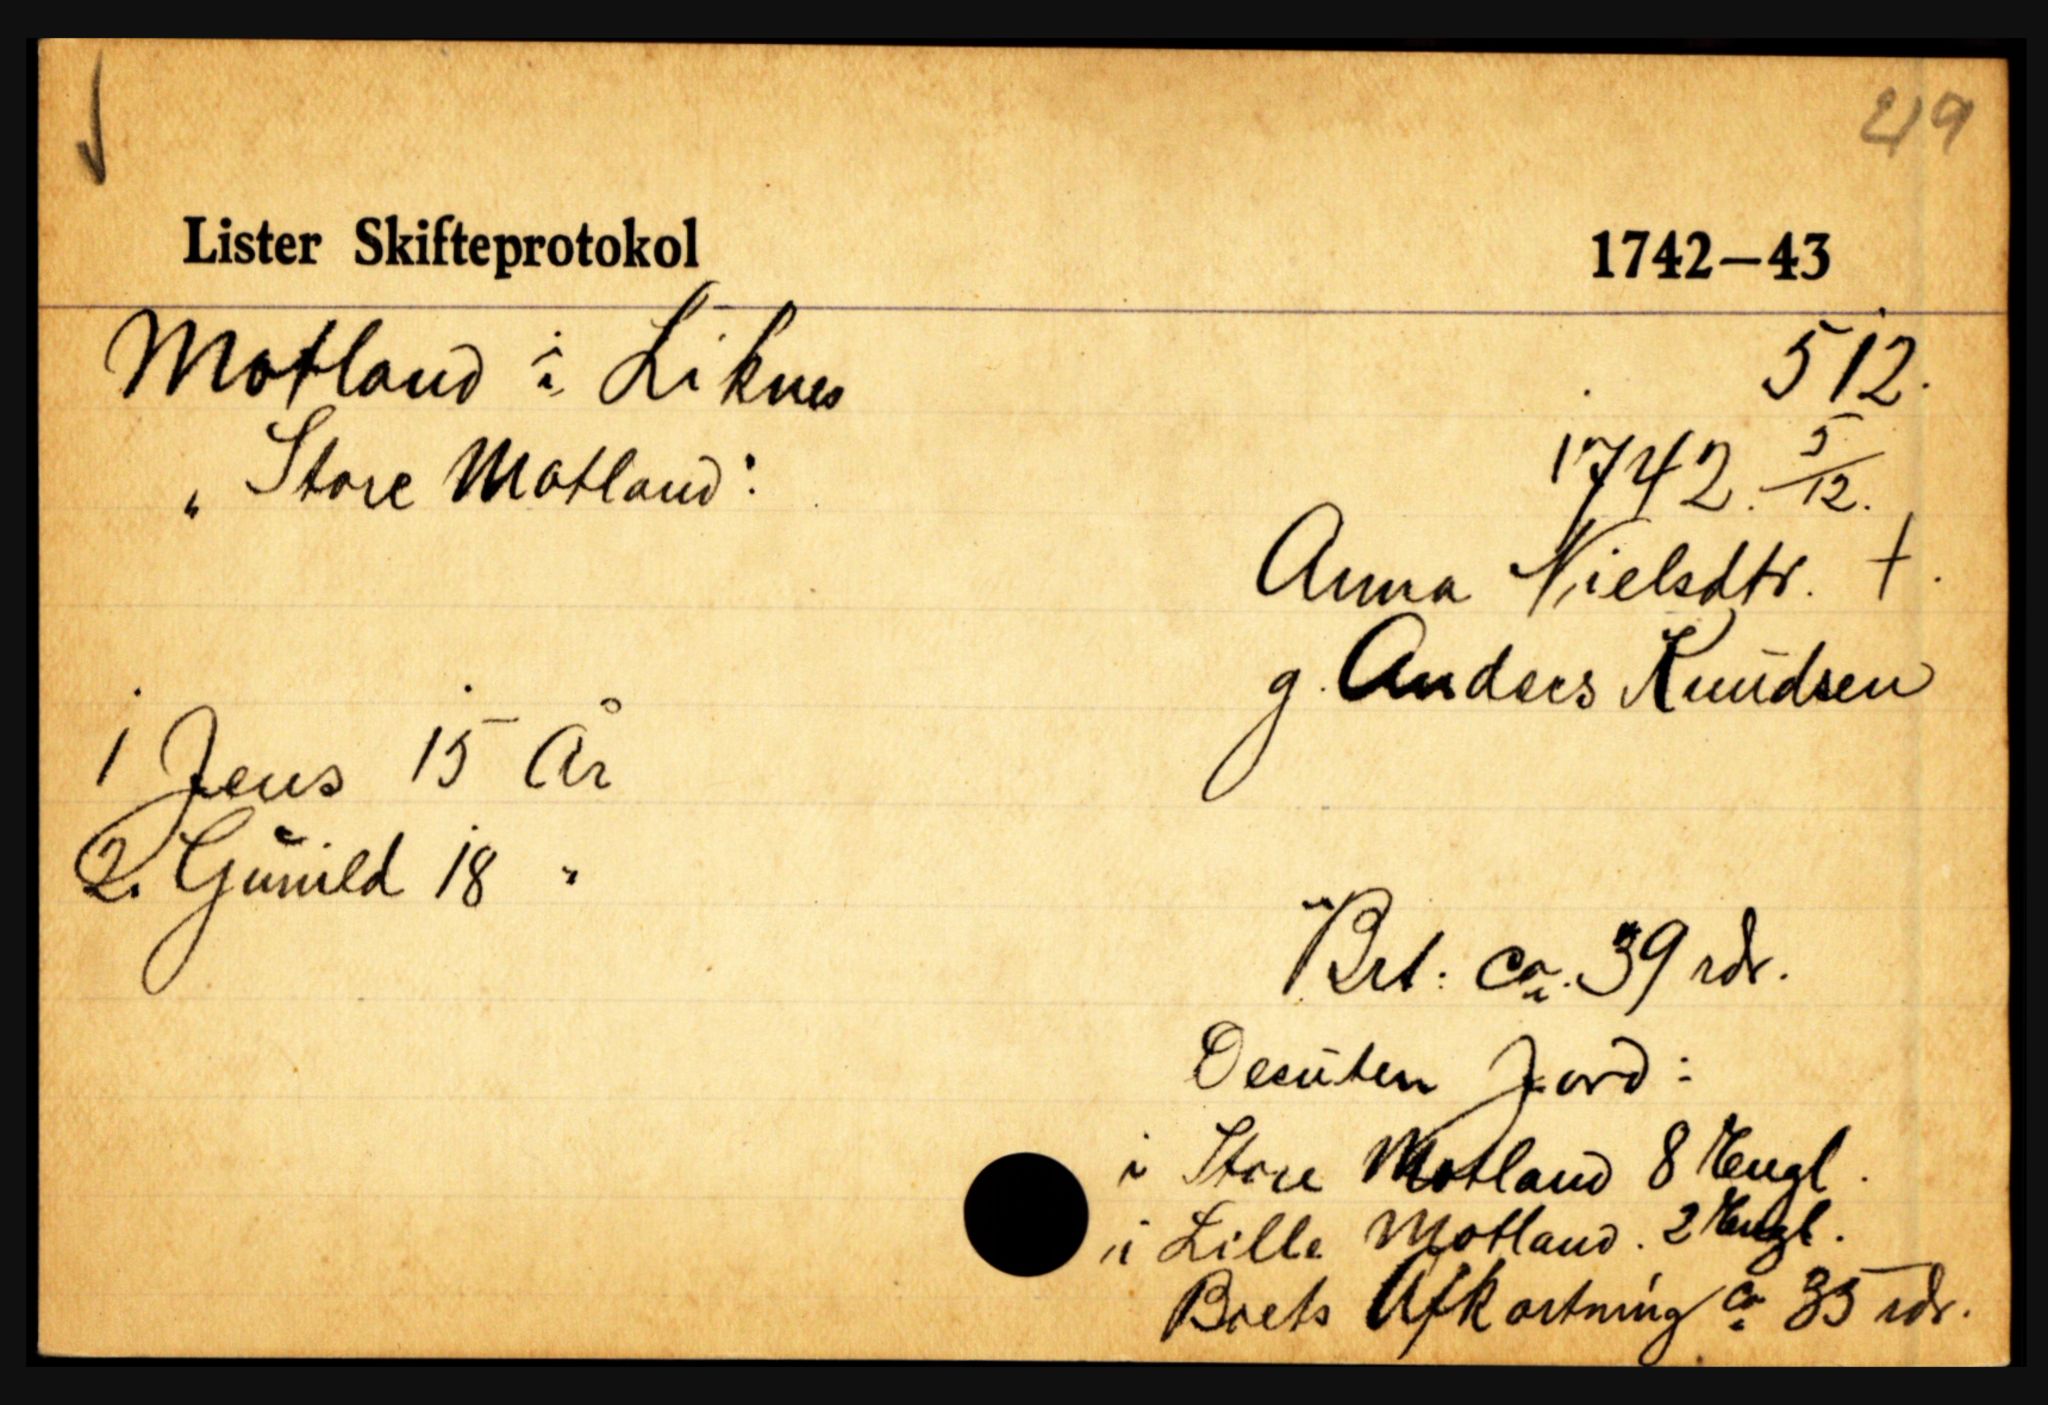 249
Lister Skifteprotokol 1742–43
Motland i Liknes 512.
„ Store Motland: 1742. 5/12.
Anna Nielsdtr. †.
g. Anders Knudsen
1 Jens 15 År
2. Gunild 18 „
Brt: ca. 39 rdr.
Desuten Jord:
i Store Motland 8 Engl.
i Lille Motland. 2 Engl.
Boets Afkortning ca 35 rdr.